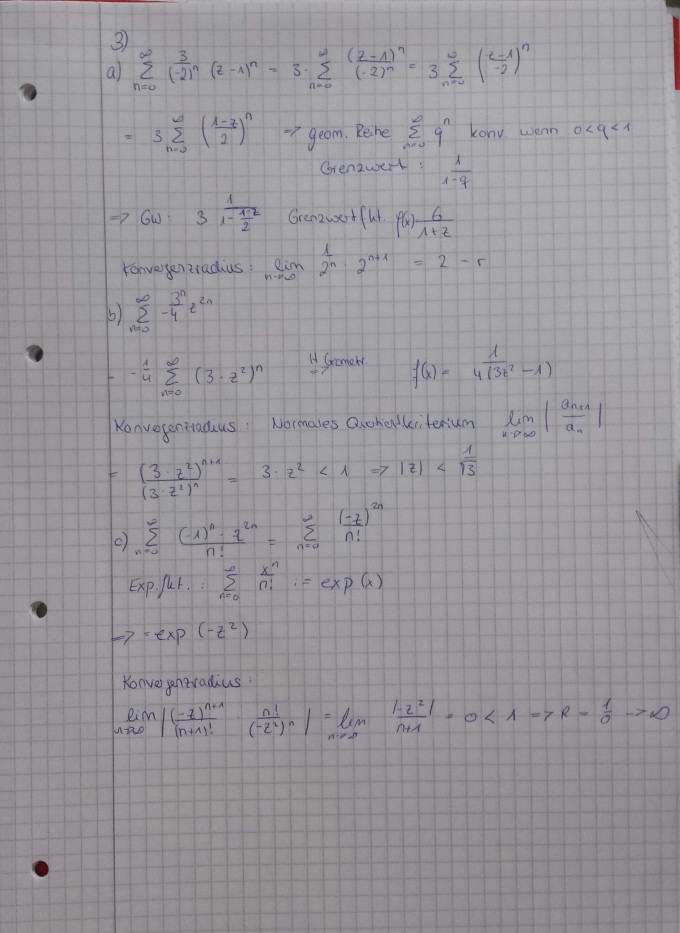 3)
a) ∞∑n=0 3/(-2)^n (z-1)^n = 3 · ∞∑n=0 (z-1)^n/(-2)^n = 3 ∞∑n=0 ((z-1)/-2)^n
= 3 ∞∑n=0 ((1-z)/2)^n => geom. Reihe ∞∑n=0 q^n konv. wenn 0<q<1
Grenzwert : 1/(1-q)
=> GW: 3 1/(1-(1-z)/2) Grenzwertfkt. f(x) = 6/(1+z)
Konvergenzradius : lim n->∞ 1/2^n · 2^(n+1) = 2 = r
b) ∞∑n=0 3^n/-4 z^(2n)
= -1/4 ∞∑n=0 (3 · z^2)^n => f(x) = 1/(4(3z^2-1))
Konvergenzradius : Normales Quotientkriterium lim n->∞ |a_(n+1)/a_n|
= (3·z^2)^(n+1)/(3·z^2)^n = 3·z^2 < 1 => |z| < 1/√3
c) ∞∑n=0 (-1)^n · z^(2n)/n! = ∞∑n=0 (-z)^(2n)/n!
Exp.fkt. : ∞∑n=0 x^n/n! := exp(x)
=> = exp(-z^2)
Konvergenzradius:
lim n->∞ |(-z)^(n+1)/(n+1)! · n!/(-z^2)^n| = lim n->∞ |-z^2|/(n+1) = 0 < 1 => R = 1/0 -> ∞